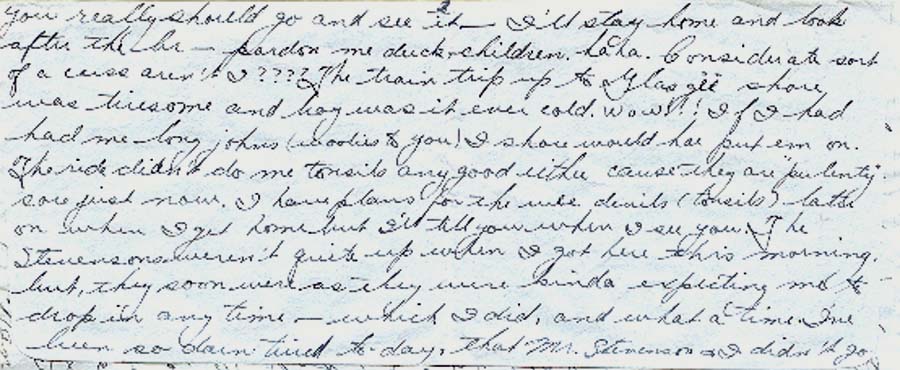 you really should go and see it — I'll stay home and look
after the br — pardon me duck, children. ha ha. Considerate sort
of a cuss aren't I???? The train trip up to Glasgee shore
was tiresome and hay was it ever cold. Wow!!! If I had
had me long johns (woolies to you) I shore would hae put em on.
The ride didn't do me tonsils any good either cause they are "purlenty"
sore just now. I have plans for the wee devils (tonsils) later
on when I get home but I'll tell you when I see you. The
Stevensons weren't quite up when I got here this morning.
but, they soon were as they were kinda expecting me to
drop in any time — which I did, and what a time. I've
been so darn tired to-day, that Mr. Stevenson & I didn't go